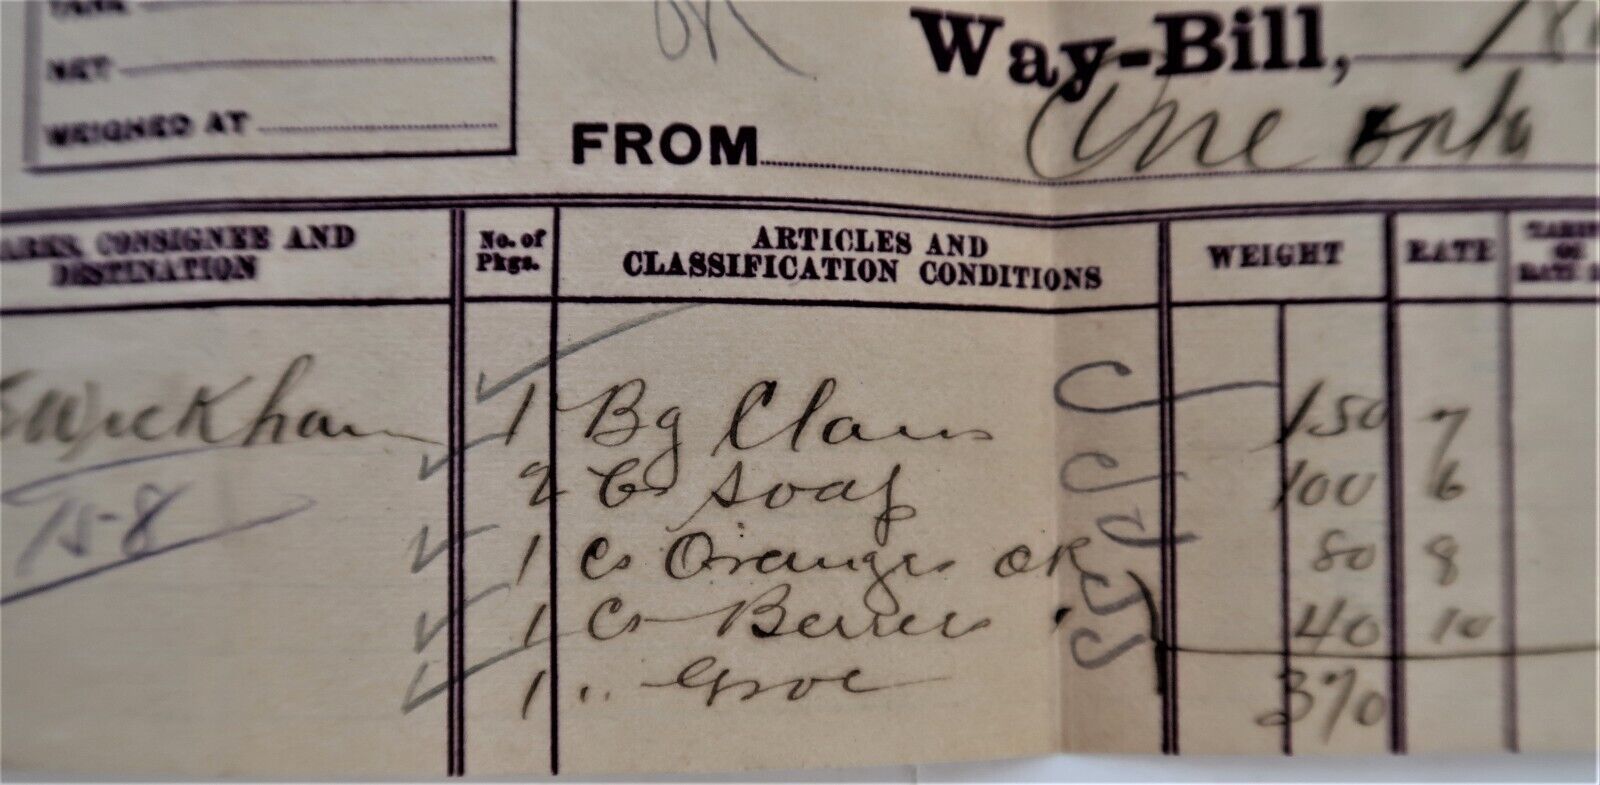 NET
WEIGHED AT
OK
Way-Bill,
FROM Oneonta
CONSIGNEE AND DESTINATION
No. of Pkgs.
ARTICLES AND CLASSIFICATION CONDITIONS
WEIGHT
RATE
Wickham
1 Bg Clams 150 7
2 Cs Soap 100 6
1 Cs Oranges OR 80 8
1 Cs Berries 40 10
1 " Groc
370